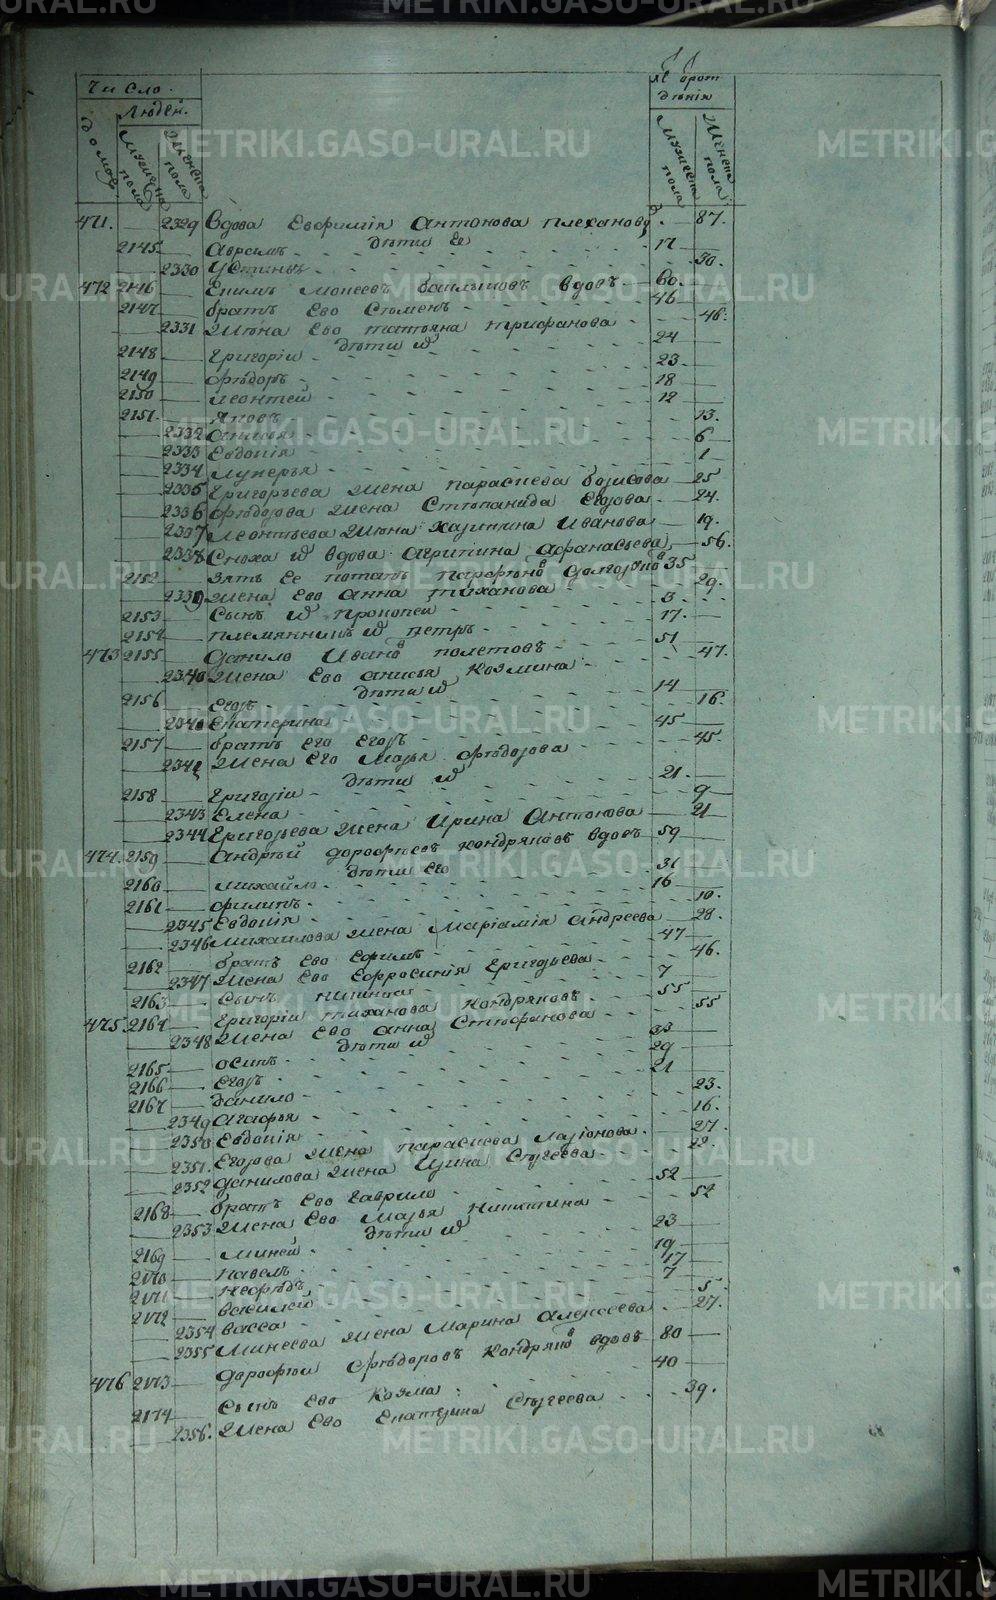 Число
Людей.
домов.
Мужеска пола
Женска пола
лѣ
Мужеска пола
Женска пола
471. 2329 Вдова Евфимія Антонова Плеханова 87.
дѣти ее
2145 Аврамъ 17
2330 Устинья 30.
472 2146 Ефимъ Моисеев вдовъ 60.
2147 братъ Ево Семенъ 46
2331 Жена Ево татьяна трифанова 46.
дѣти и
2148 Григорій 24
2149 Ѳедоръ 23
2150 леонтей 18
2151 Яковъ 12
2332 Анисья 13.
2333 Евдокія 6
2334 лукерья 1
2335 Григорьева жена параскева борисова 25
2336 Ѳедорова жена Степанида Егорова 24.
2337 леонтьева Жена Харитина Иванова 19.
2338 Сноха и вдова агрипина афанасьева 56.
2152 зять ее потапъ парфеновъ 35
2339 Жена ево анна тиханова 29.
2153 Сынъ и прокопей 3
2154 племянникъ и петръ 17.
473 2155 Данило Ивановъ полетовъ 51
2340 Жена Ево анисья Козмина 47.
дѣти и
2156 Егоръ 14
Екатерина 16.
2157 братъ его Егоръ 45
Жена Его Марья Ѳедорова 45.
дѣти и
2158 Григорій 21.
2343 Елена 9
2344 Григорьева Жена Ирина Антонова 21
474. 2159 Андрей дорофеевъ кондряковъ вдовъ 59
дѣти его
2160 михайло 31
2161 филипъ 16
2345 Евдокія 10.
2346 михаилова Жена Маріамія Андреева 28.
2162 братъ Ево Ефимъ 47
2347 Жена Ево Ефросинія Григорьева 46.
2163 Сынъ никита 7
475 2164 Григорій тиханова кондряковъ 55
2348 Жена Ево анна Стефанова 55
дѣти и
2165 осипъ 33
2166 Егоръ 29
2167 данило 21
2349 Агафья 23.
2350 Евдокія 16.
2351. Егорова жена параскева ларіонова 27.
2352 данилова Жена Ирина Сергеева 22.
2168 братъ Ево Гаврило 52
2353 Жена Ево Марья никитина 52
дѣти и
2169 миней 23
2170 павелъ 19
2171 неѳедъ 17
2172 василей 7
2354 васса 5.
2355 Минеева Жена Марина алексеева 27.
476 2173 Дорофеи Ѳедоровъ Кондряковъ вдовъ 80
2174 Сынъ Ево Козма 40
2356. Жена Ево Екатерина Сергеева 39.
METRIKI.GASO-URAL.RU